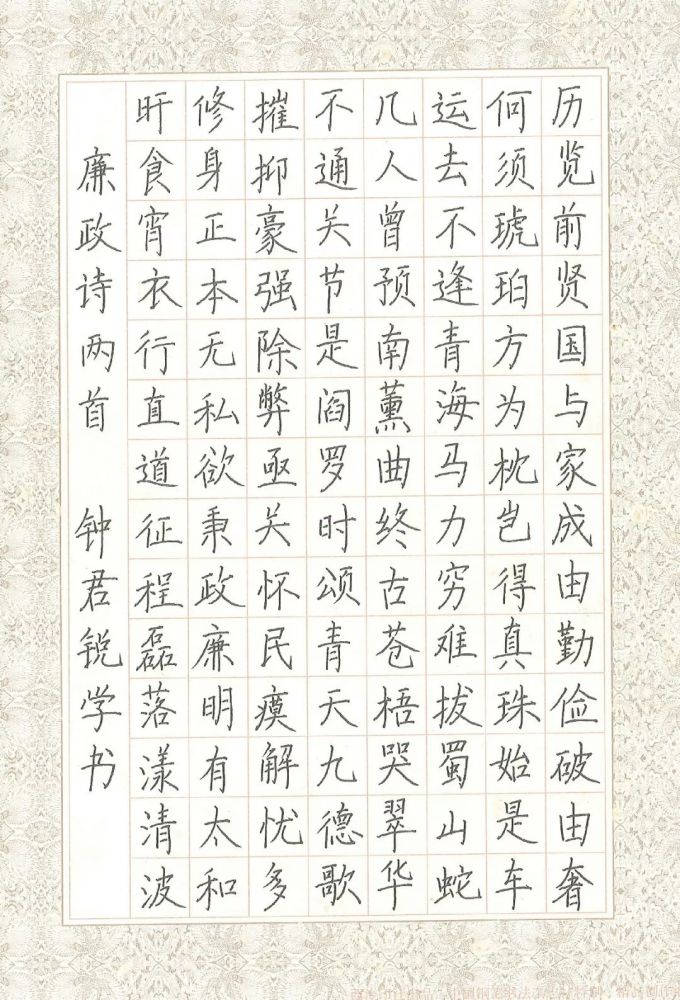 历览前贤国与家成由勤俭破由奢
何须琥珀方为枕岂得真珠始是车
运去不逢青海马力穷难拔蜀山蛇
几人曾预南薰曲终古苍梧哭翠华
不通关节是阎罗时颂青天九德歌
摧抑豪强除弊亟关怀民瘼解忧多
修身正本无私欲秉政廉明有太和
旰食宵衣行直道征程磊落漾清波
廉政诗两首 钟君锐学书